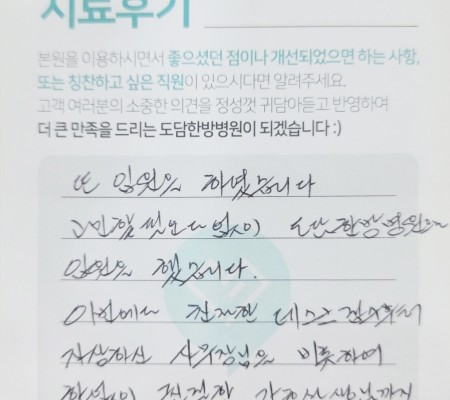 치료후기
본원을 이용하시면서 좋으셨던 점이나 개선되었으면 하는 사항,
또는 칭찬하고 싶은 직원이 있으시다면 알려주세요.
고객 여러분의 소중한 의견을 정성껏 귀담아듣고 반영하여
더 큰 만족을 드리는 도담한방병원이 되겠습니다 :)
또 입원을 하였습니다
고민할 필요다 없이 도담한방병원으로
입원을 했습니다.
이번에도 친절한 데스크 접수부터
자상하신 사무장님을 비롯하여
한결같이 친절한 간호사선생님까지